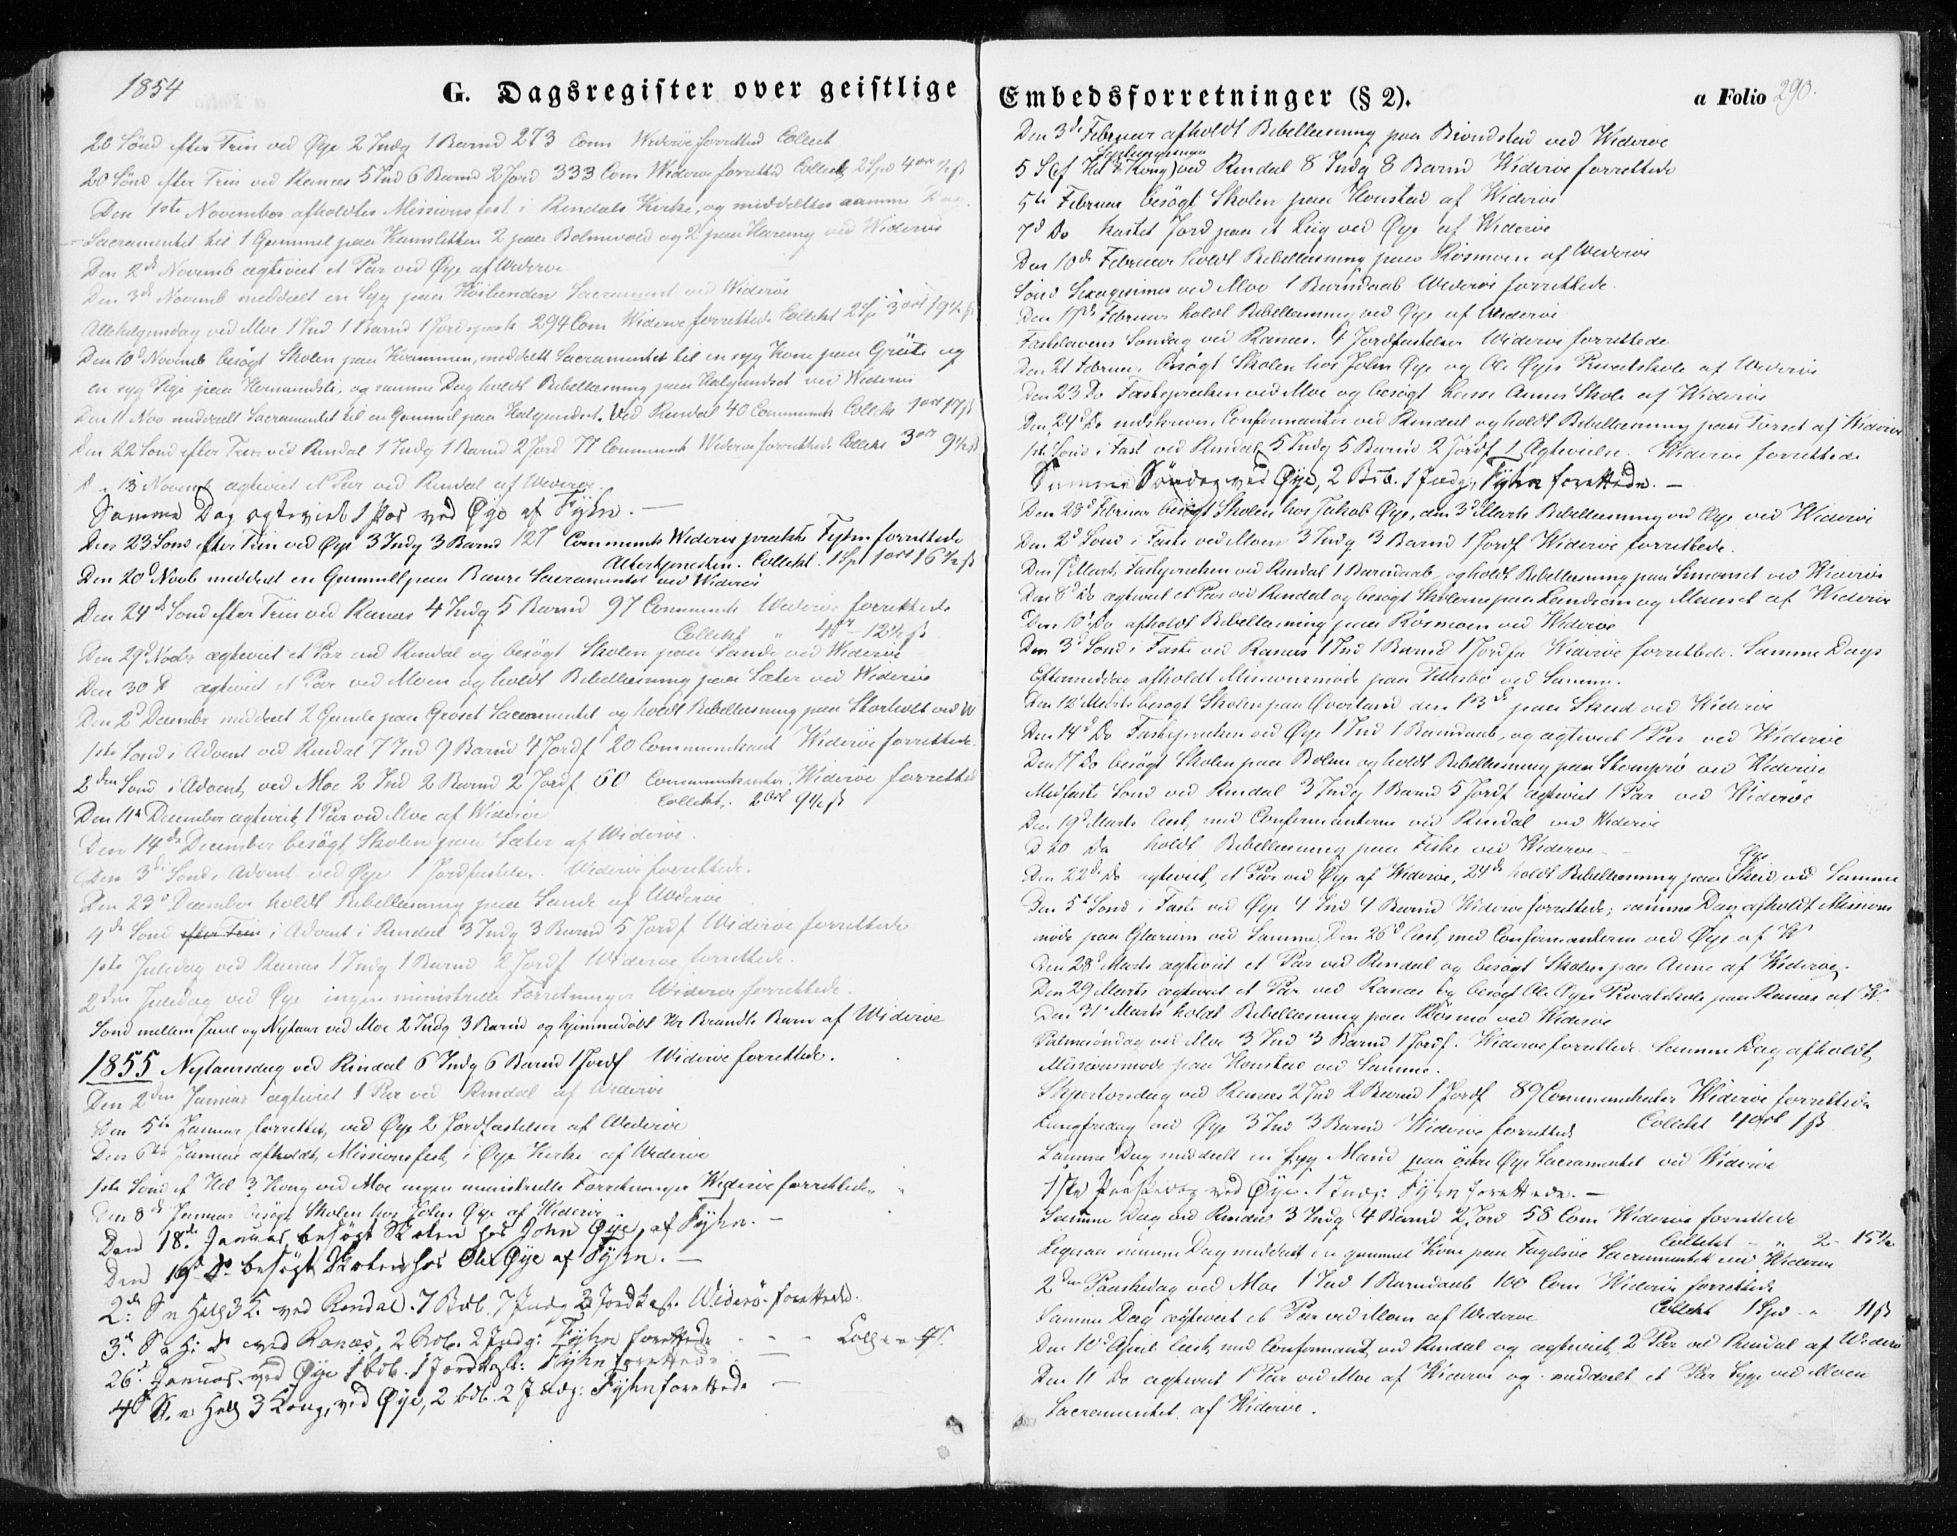 1854
G. Dagsregister over geistlige
20 Sønd efter Trin ved Øye 2 Indg 1 Barnd 273 Com Widerøe forrettede Collect
20 Sønd efter Trin ved Ranæs 5 Ind 6 Barnd 2 Jord 333 Com Widerøe forrettede Collect 2 Spd 4 ort
Den 1ste November afholdtes Missionsfest i Rindals Kirke, og meddeltes samme Dag
Sacramentet til 1 Gammel paa 2 paa Bolmevold og 2 paa ved Widerøe
Den 2de Novemb ægteviet et Par ved Øye af Widerøe
Den 3de Novemb meddelt en Syg paa Sacrament ved Widerøe
Allehelgensdag ved Moe 1 Ind 1 Barnd 1 Jordspaak 294 Com Widerøe forrettede Collekt 2 Sp 3 ort 19½ ß
Den 10d Novemb besøgt Skolen paa Kvammen, meddelt Sacramentet til en syg Kone paa Grøte og
en syg Pige paa og samme Dag holdt Bibellæsning paa Halgundset ved Widerøe
Den 11 Nov meddeelt Sacramentet til en Gammel paa Halgundset. Ved Rindal 40 Communik Collekt 1 ort 17 ß
Den 22 Sønd efter Trin ved Rindal 1 Indg 1 Barnd 2 Jord 77 Communik Widerøe forrettede Collekt 3 ort 9½ ß
D. 13 Novemb ægteviet et Par ved Rindal af Widerøe.
Samme Dag egteviet 1 Par ved Øye af Fyhn. —
Den 23 Sønd efter Trin ved Øye 3 Indg 3 Barnd 127 Communik Widerøe præket Fyhn forrettede
Altertjenesten. Collekt. 1 Sp 1 ort 16½ ß
Den 20d Novb meddelt en Gammel paa Bævre Sacramentet ved Widerøe
Den 24de Sønd efter Trin ved Ranæs 4 Indg 5 Barnd 97 Communik Widerøe forrettede
Collekt " 4 ort 12½ ß
Den 29d Novbr ægteviet et Par ved Rindal og besøgt Skolen paa Sande ved Widerøe
Den 30 D ægteviet et Par ved Moen og holdt Bibellæsning paa Sæter ved Widerøe
Den 2d Decembr meddelt 2 Gamle paa Grøset Sacramentet og holdt Bibellæsning paa ved W
1ste Sønd i Advent ved Rindal 7 Ind 9 Barnd 4 Jordf 20 Communikant Widerøe forrettede.
2den Sønd i Advent, ved Moe 2 Ind 2 Barnd 2 Jordf 60 Communikanter Widerøe forretted
Collekt. 2 ort 9½ ß
Den 11te December ægteviet, 1 Par ved Moe af Widerøe
Den 14de December besøgt Skolen paa Sæter af Widerøe.
Den 3die Sønd i Advent ved Øye 1 Jordfæstelse. Widerøe forrettede.
Den 23d December holdt Bibellæsning paa Sande af Widerøe
4de Sønd efter Trin i Advent i Rindal 3 Indg 3 Barnd 5 Jordf Widerøe forrettede
1ste Juledag ved Ranæs 1 Indg 1 Barnd 2 Jordf Widerøe forrettede.
2den Juledag ved Øye ingen ministrielle Forretninger Widerøe forrettede.
Sønd mellem Juul og Nytaar ved Moe 2 Indg 3 Barnd og hjemmedøbt Hr Brandts Barn af Widerøe
1855 Nytaarsdag ved Rindal 6 Indg 6 Barnd 1 Jordf Widerøe forrettede.
Den 2den Januar ægteviet 1 Par ved Rindal af Widerøe
Den 5te Januar forrettet, ved Øye 2 Jordfæstelser af Widerøe
Den 6te Januar afholdt, Missionsfest, i Øye Kirke af Widerøe
1ste Sønd ef Hel 3 Kong ved Moe ingen ministrielle Forretninger Widerøe forrettede.
Den 8de Januar besøgt Skolen hos John Øye af Widerøe
Den 18de Januar besøgt Skolen hos John Øye, af Fyhn. —
Den 19 Do besøgt Skolen hos Ole Øye af Fyhn. —
2. S. e Hell 3 K. ved Rindal. 7 Bdb. 7 Indg 2 Jordkast. Widerø forettede.
3d. S e H: do ved Ranæs, 2 Bdb. 2 Indg: Fyhn forettede
26d Januar ved Øye 1 bdb. 1 Jordkast: Fyhn forettede
4de S. e. Hell 3 Kong, ved Øye, 2 bdb. 2 Indg: Fyhn forettede —
Embedsforretninger (§ 2).
a Folio 290.
Den 3de Februar afholdt Bibellæsning paa Brøndstad ved Widerøe
5 S (ef Hel 3 Kong) ved Rindal 8 Indg 8 Barnd Widerøe forrettede
5te Februar besøgt Skolen paa Honstad af Widerøe
7d Do kastet Jord paa et Liig ved Øye af Widerøe
Den 10de Februar holdt Bibellæsning paa Røsmoen af Widerøe
Sønd Sexagesima ved Moe 1 Barndaab Widerøe forrettede.
Den 17de Februar holdt Bibellæsning ved Øye af Widerøe
Fastelavens Søndag ved Ranæs. 9 Jordfæstelser Widerøe forrettede
Den 21 Februar besøgt Skolen hos John Øye og Ole Øyes Privatskole af Widerøe
Den 23 Do Fasteprædiken ved Moe og besøgt Lærer Annes Skole af Widerøe
Den 24d Do indskreven Confirmanter ved Rindal og holdt Bibellæsning paa Torset af Widerøe
1ste Sønd i Fast ved Rindal 5 Indg 5 Barnd 2 Jordf 1 Ægtevielse. Widerøe forrettede
Samme Søndag ved Øye, 2 Bdb. 1 Indg. Fyhn forettede. —
Den 28d Februar besøgt Skolen hos Jakob Øye, den 3d Marts Bibellæsning ved Øye ved Widerøe
Den 2d Sønd i Faste ved Moen 3 Indg 3 Barnd 1 Jordf Widerøe forrettede.
Den 7d Marts Fasteprædiken ved Rindal 1 Barndaab, og holdt Bibellæsning paa ved Widerøe
Den 8d Do ægteviet et Par ved Rindal og besøgt Skolerne paa Landsem og af Widerøe
Den 10d Do afholdt Bibellæsning paa Røsmoen ved Widerøe
Den 3d Sønd i Faste ved Ranæs 1 Ind 1 Barnd 1 Jordfæ Widerøe forrettede. Samme Dags
Eftermiddag afholdt Missionsmøde paa ved Samme.
Den 12d Marts besøgt Skolen paa Øvreland den 13de paa Skied ved Widerøe
Den 14d Do Fasteprædiken ved Øye 1 Ind 1 Barndaab, og ægteviet 1 Par ved Widerøe
Den 17 Do besøgt Skolen paa Bolme og holdt Bibellæsning paa ved Widerøe
Midfaste Sønd ved Rindal 3 Indg 1 Barnd 5 Jordf ægteviet 1 Par ved Widerøe
Den 19d Marts læst, med Confirmanterne ved Rindal ved Widerøe
D 20 Do holdt Bibellæsning paa Fiske ved Widerøe
Den 22de Do ægteviet, et Par ved Øye af Widerøe, 24de holdt Bibellæsning paa Skeid, ved Samme
Den 5te Sønd i Faste ved Øye 4 Ind 4 Barnd Widerøe forrettede; samme Dag afholdt Missions
møde paa Glærum ved Samme. Den 26d læst, med Confirmanterne ved Øye af W
Den 28d Marts ægteviet et Par ved Rindal og besøgt Skolen paa Aune af Widerøe.
Den 29 Marts ægteviet et Par ved Ranæs og besøgt Ole Øyes Privatskole paa Ranæs af W.
Den 31d Marts holdt Bibellæsning paa Røsmo ved Widerøe
Palmesøndag ved Moe 3 Ind 3 Barnd 1 Jordf. Widerøe forrettede. Samme Dag afholdt,
Missionsmøde paa Honstad ved Samme.
Skjertorsdag ved Ranæs 2 Ind 2 Barnd 1 Jordf 89 Communikanter Widerøe forrettede
Langfredag ved Øye 3 Ind 3 Barnd Widerøe forrettede Collekt 4 ort 1 ß
Samme Dag meddeelt en syg Mand paa østre Øye Sacramentet ved Widerøe
1ste Paaskedag ved Øye. 1 Indg: Fyhn forettede. —
Samme Dag ved Rindal 3 Indg 4 Barnd 2 Jord 58 Com Widerøe forrettede
Collekt - " 2 - 15½
samme Dag meddeelt en gammel Kone paa Fagerlie Sacramentet ved Widerøe
2den Paaskedag ved Moe 1 Ind 1 Barndaab 100 Com Widerøe forrettede
Collekt 1 Spd " 11 ß
Samme Dag ægteviet et Par ved Moen af Widerøe
Den 10d April læst, med Confirmant, ved Rindal og ægteviet, 2 Par ved Rindal af Widerøe
Den 11 Do ægteviet 1 Par ved Moe af Widerøe og meddeelt et Par Syge ved Moen
Sacramentet af Widerøe.